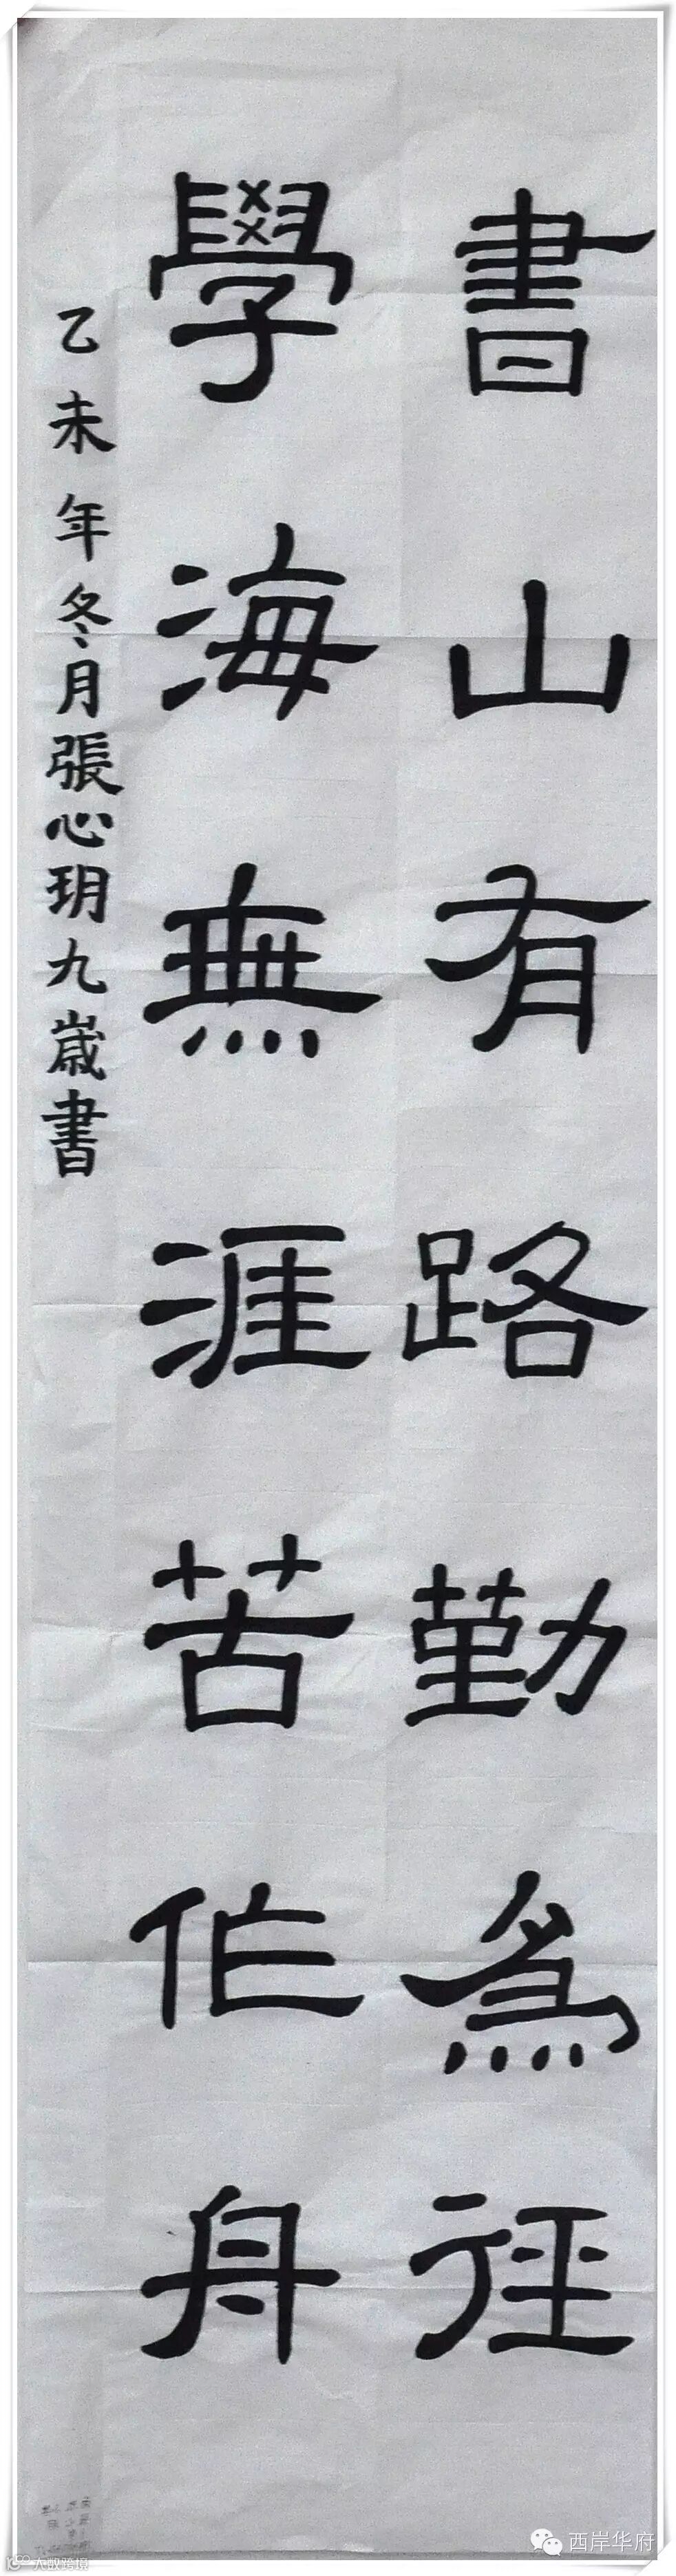 書山有路勤爲徑
學海無涯苦作舟
乙未年冬月張心玥九歲書
西岸华府
大数跨境